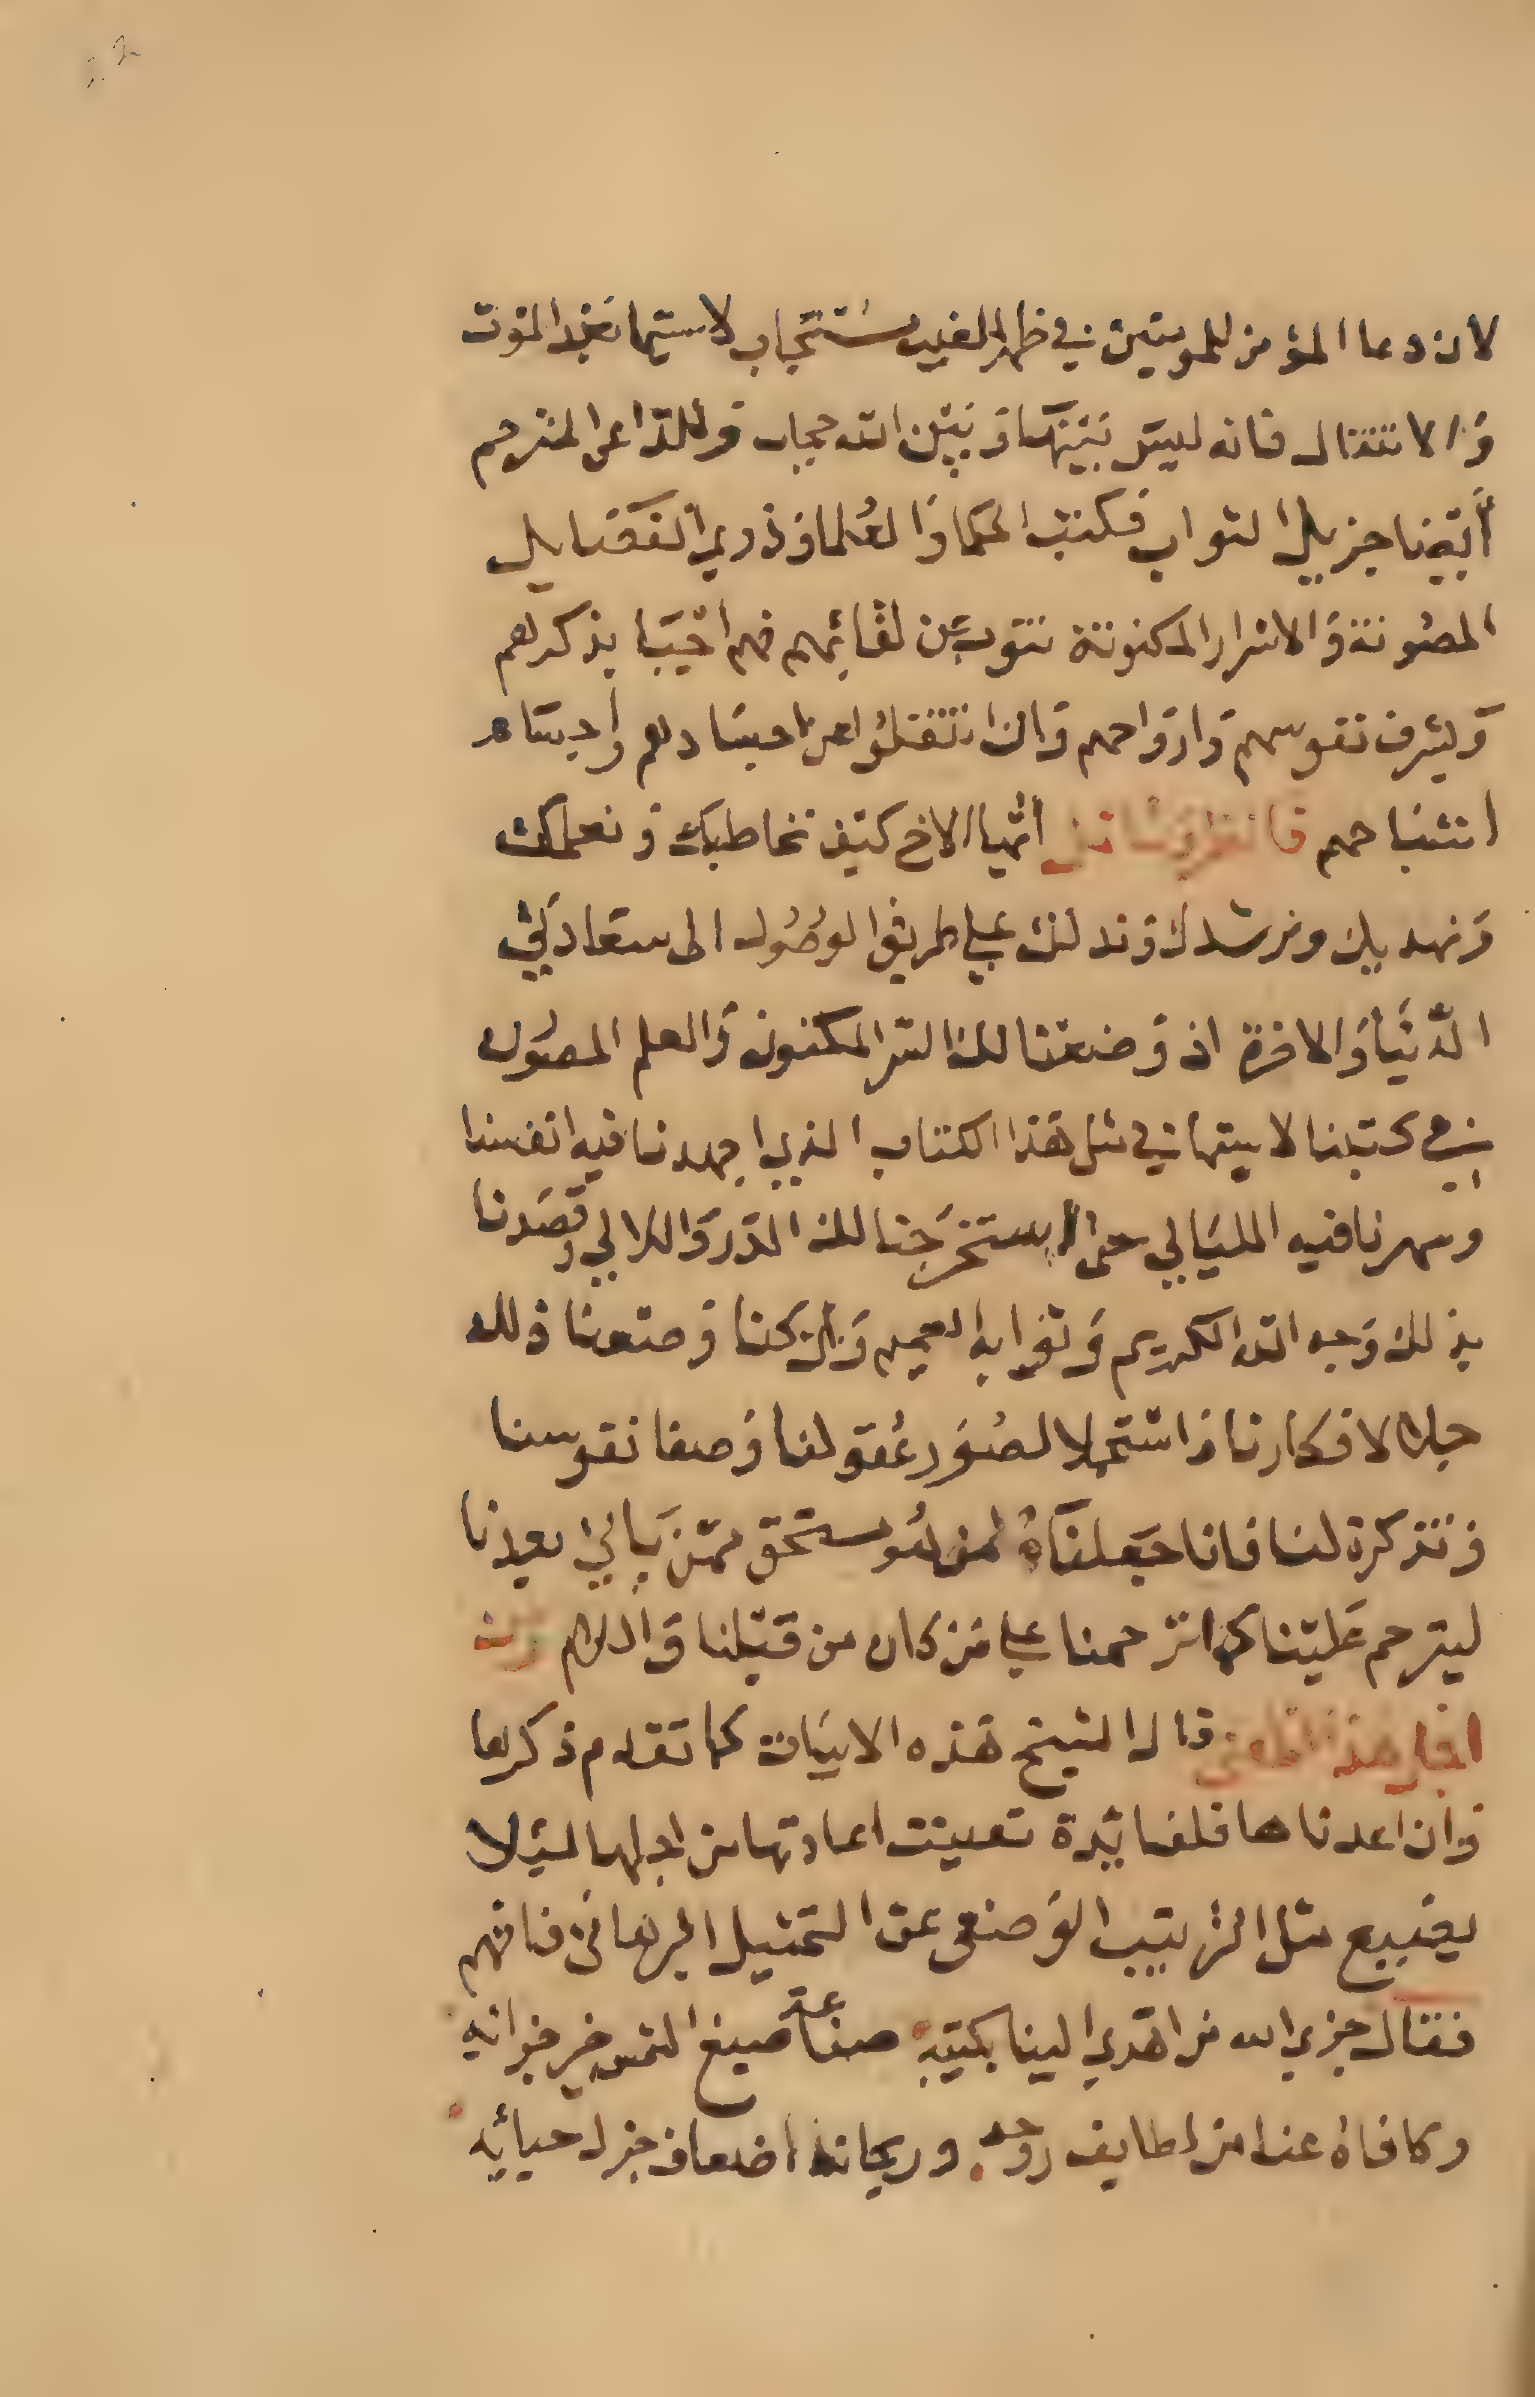 لان دعا المؤمن للمومنين في ظهر الغيب مستجاب لا سيما بعد الموت
والانتقال فانه ليس بينها وبين الله حجاب وللداعي المترحم
أيضا جزيل الثواب فكتب الحكما والعلما وذوي الفضايل
المصونة والاسرار المكنونة تنوب عن لقائهم فهم احيا بذكرهم
ويشرف نفوسهم وارواحهم وان انتقلوا عن اجسادهم واجسام
اشباحهم فانظر وتامل أيها الاخ كيف نخاطبك ونعلمك
ونهديك ونرشدك وندلك علي طريق الوصول الى سعادتي
الدنيا والاخرة اذ وضعنا لك السر المكنون والعلم المصون
في كتبنا لا سيما في مثل هذا الكتاب الذي اجهدنا فيه انفسنا
وسهرنا فيه الليالي حتى استخرجنا لك الدرر واللالي وقصدنا
بذلك وجه الله الكريم وثوابه العميم وان كنا وضعنا ذلك
جلاء لافكارنا واستجلا لصور عقولنا وصفا نفوسنا
وتذكرة لنا فانا جعلناه لمن هو مستحق ممن يأتي بعدنا
ليترحم علينا كما ترحمنا علي من كان من قبلنا والسلام
قال الشيخ هذه الابيات كما تقدم ذكرها
وان اعدناها فلفائدة تعينت اعادتها من اجلها لئلا
يضيع مثل الترتيب الوضعي عن التمثيل البرهاني فافهم
فقال جزي الله من اهدي الينا بكتبه صناعة صبغ الشمس خير جزائه
وكافاه عنا من لطايف روحه وريحانه اضعاف جزل حبائه